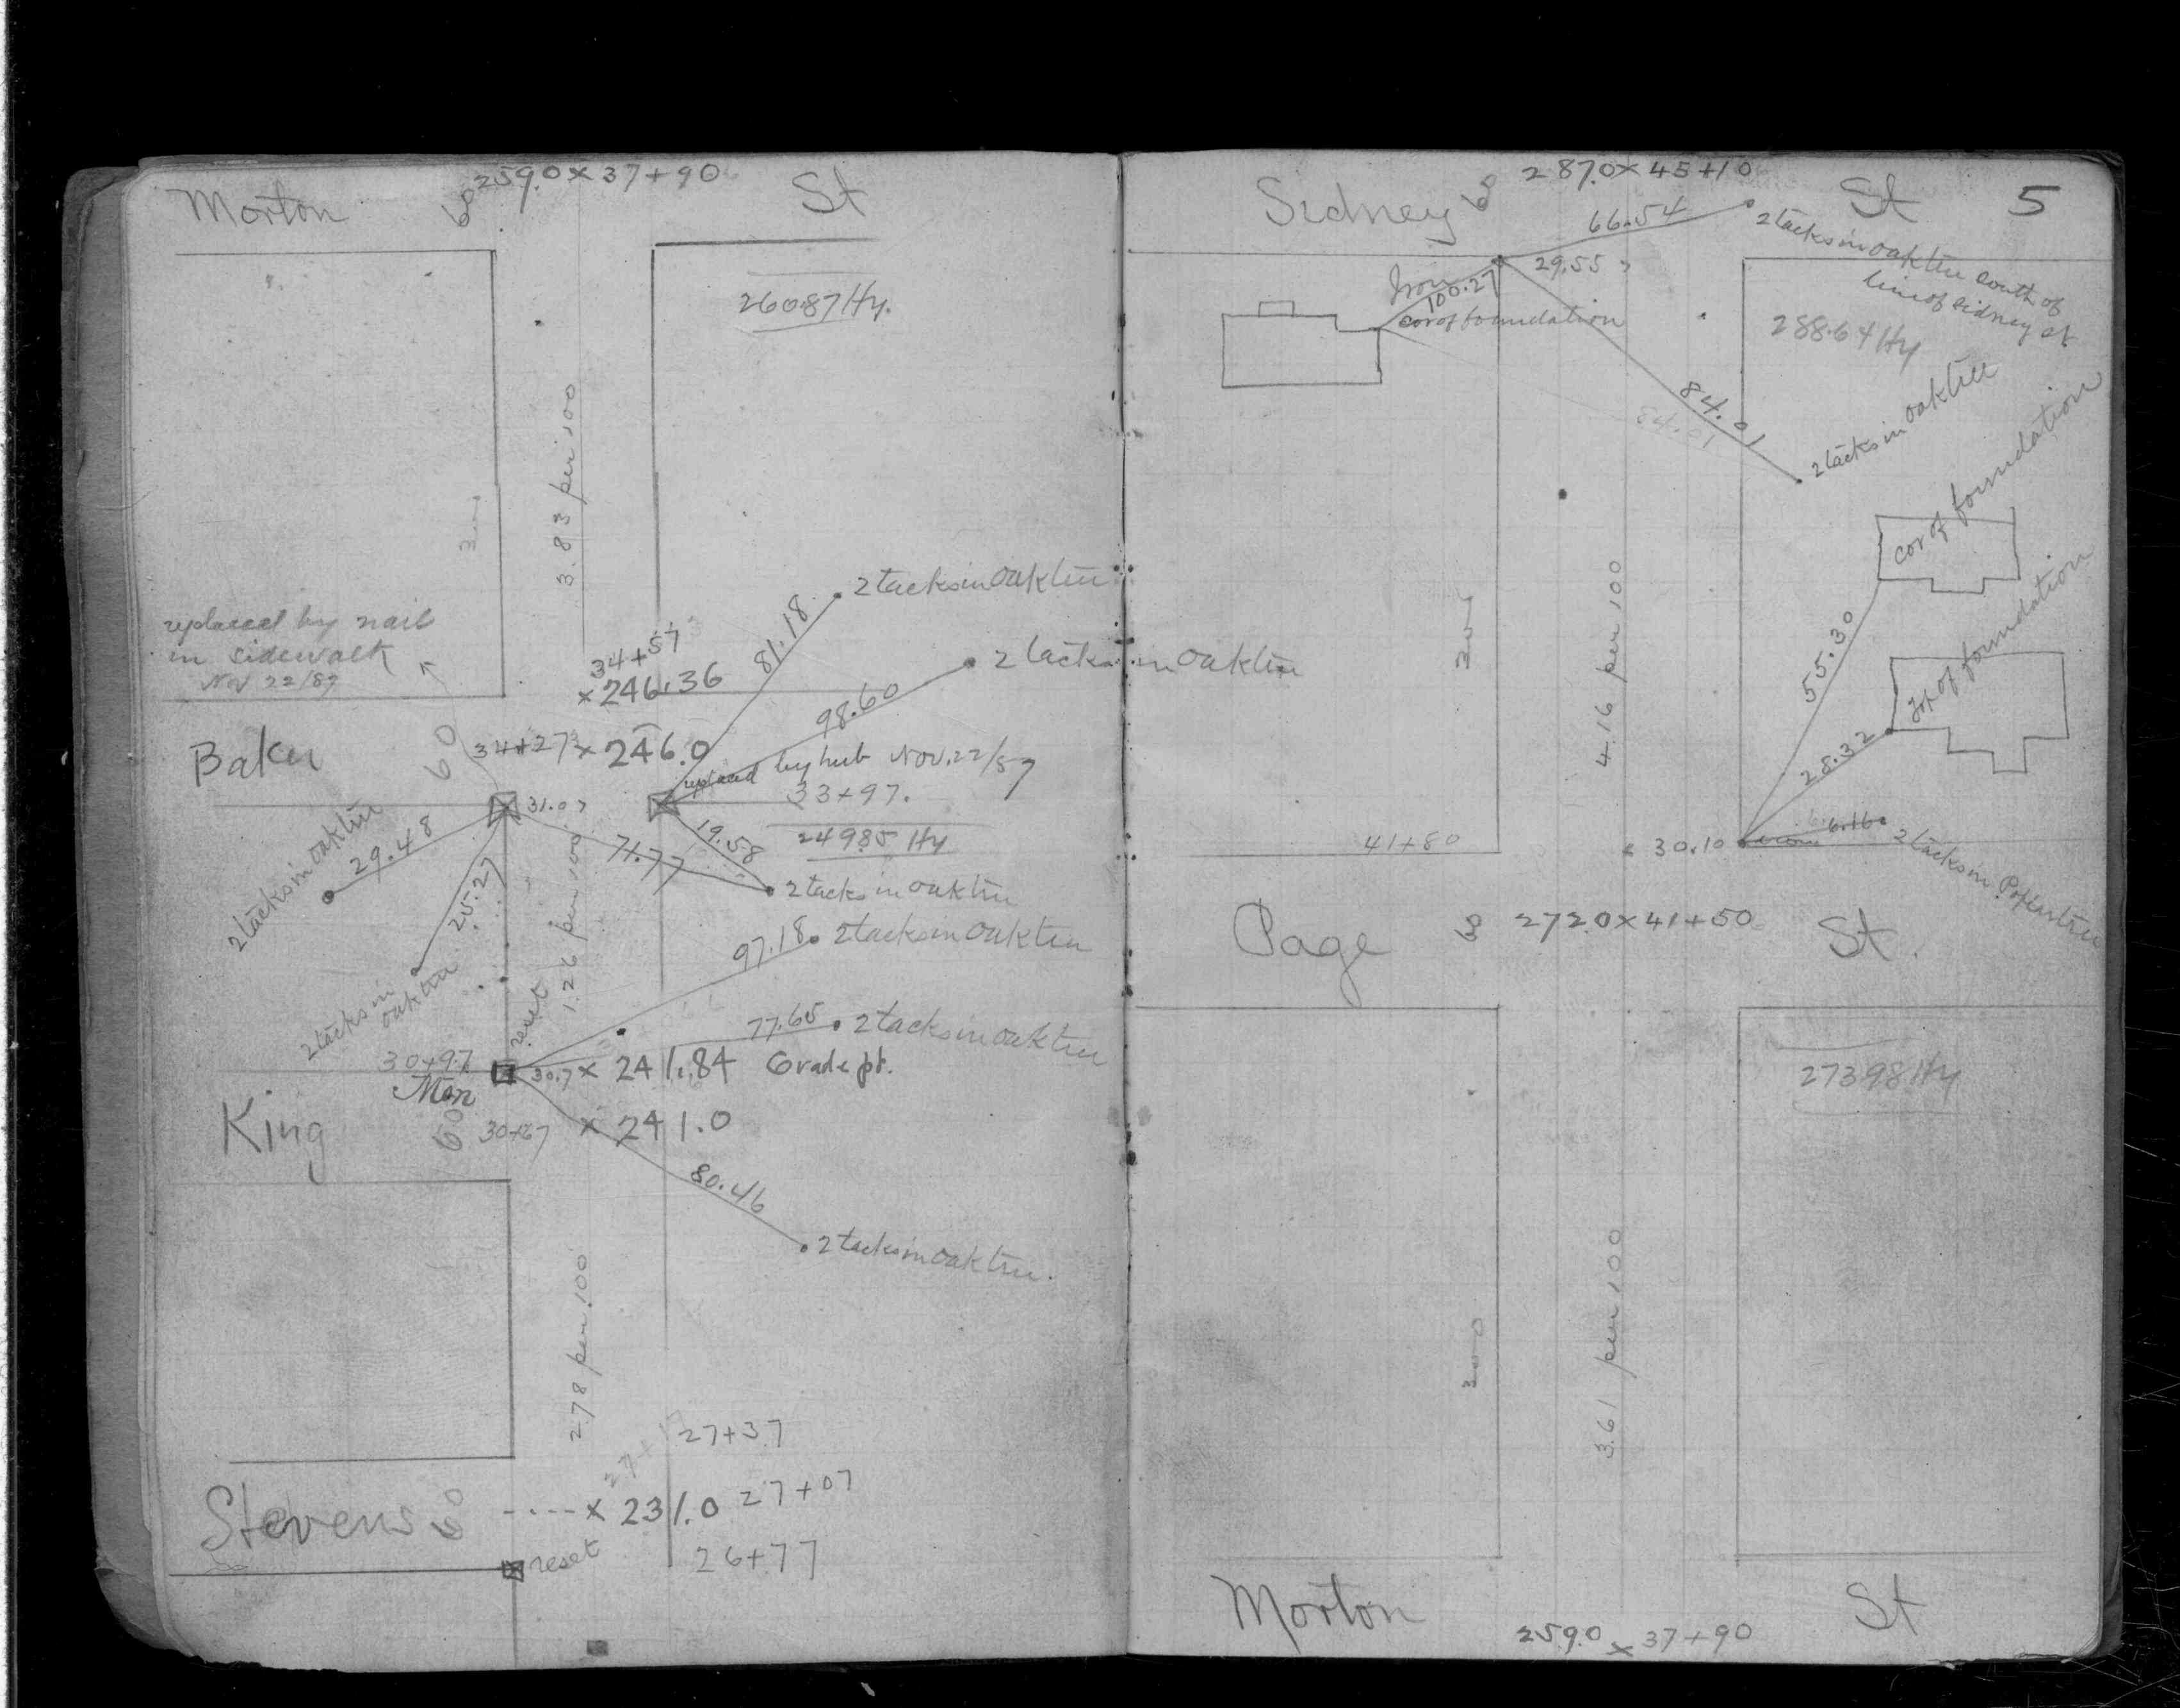 Morton 60 259.0 x 37+90 St
260.87 Hy.
3.83 per 100
300
replaced by nail
in sidewalk
Nov 22/87
2 tacks in oak tree
81.18
34+57
x 246.36
2 tacks in oak tree
98.60
Baker 60 34+27 x 246.0
replaced by hub Nov. 22/87
33+97.
249.85 Hy
31.0
2 tacks in oak tree
29.48
25.27
71.77
19.58
2 tacks in oak tree
1.26 per 100
97.18
2 tacks in oak tree
2 tacks in
oak tree
reset
77.65
2 tacks in oak tree
30+97
Mon
30.7 x 241.84 Grade pt.
King 60 30+67 x 241.0
80.46
2 tacks in oak tree.
2.78 per 100
27+37
Stevens 60 x 231.0 27+07
reset
26+77
Sidney 60 287.0 x 45+10 St 5
66.54
2 tacks in oak tree south of
line of Sidney st
29.55
100.27
cor of foundation
288.64 Hy
84.01
84.01
2 tacks in oak tree
cor of foundation
300
4.16 per 100
55.30
cor of foundation
28.32
41+80
30.10
6.16
2 tacks in Poplar tree
Page 60 272.0 x 41+50 St.
273.98 Hy
300
3.61 per 100
Morton St
259.0 x 37+90